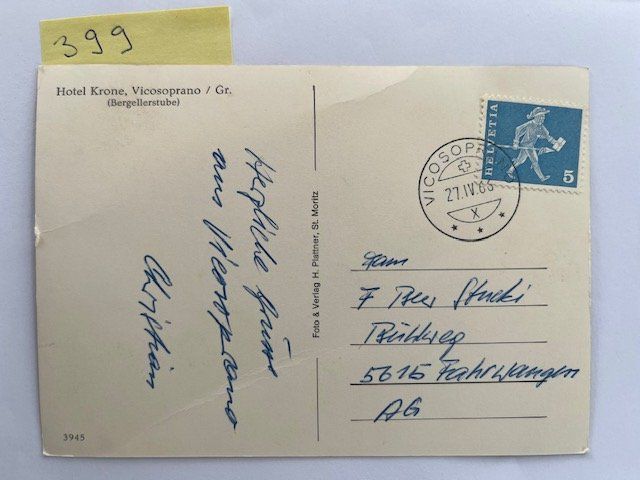 399
Hotel Krone, Vicosoprano / Gr.
(Bergellerstube)
Herzliche Grüsse
aus Vicosoprano
Christian
Foto & Verlag H. Plattner, St. Moritz
HELVETIA
5
VICOSOPR
27.IV.68
X
Fam
Stucki
Bühlweg
5615 Fahrwangen
AG
3945